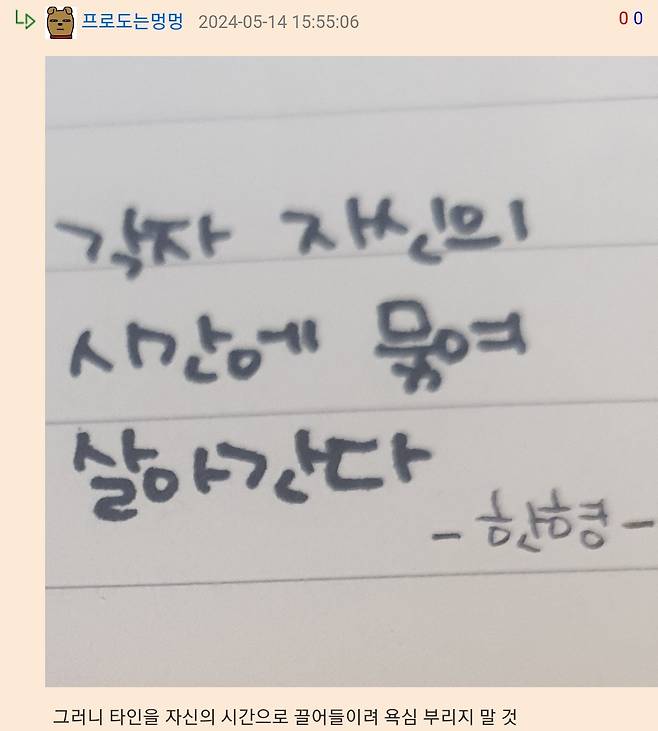 프로도는멍멍 2024-05-14 15:55:06 0 0
각자 자신의
시간에 묶여
살아간다
- 한형 -
그러니 타인을 자신의 시간으로 끌어들이려 욕심 부리지 말 것